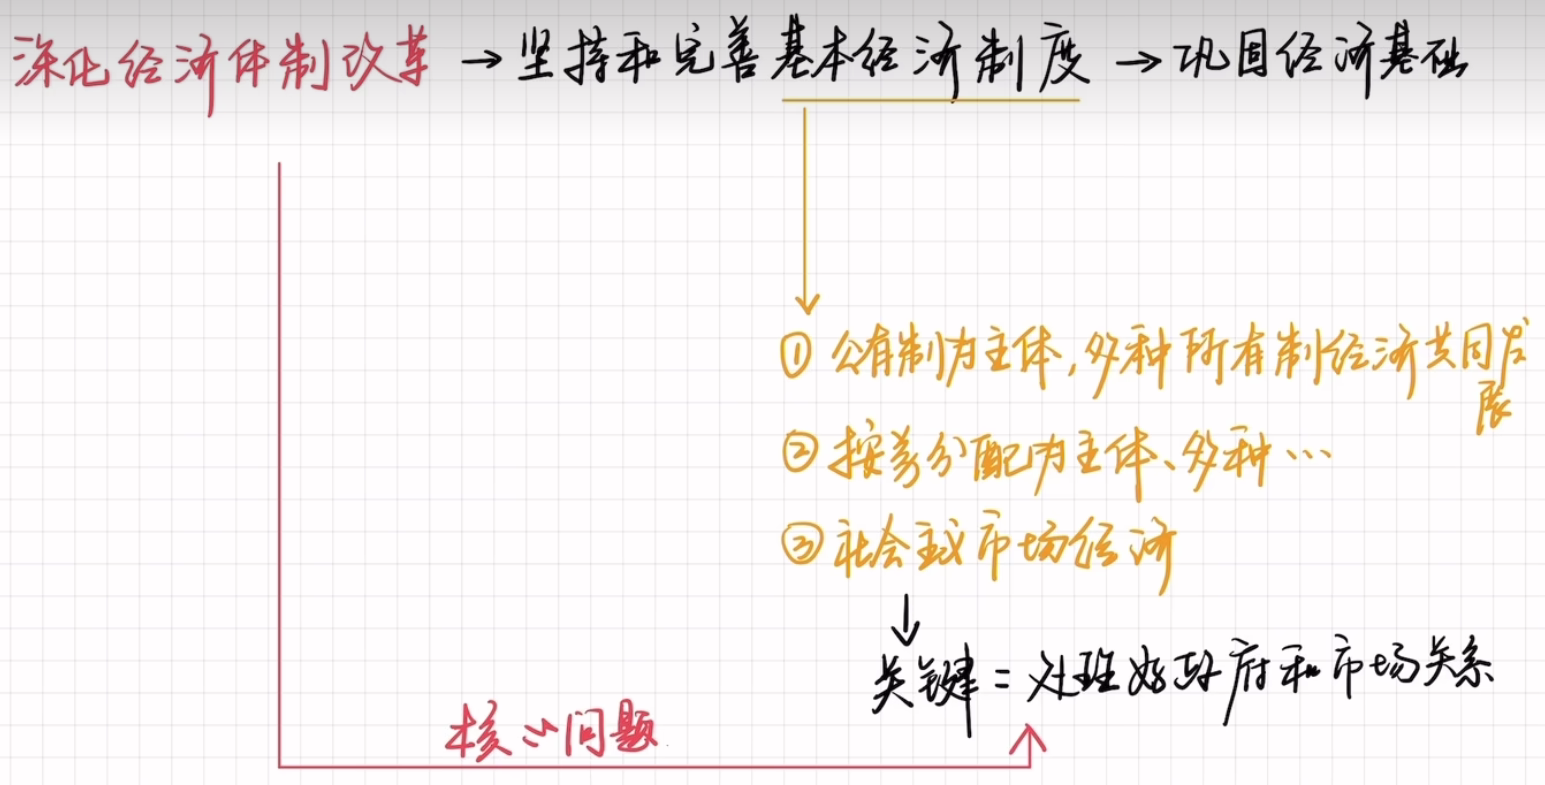 深化经济体制改革 → 坚持和完善基本经济制度 → 巩固经济基础
① 公有制为主体,多种所有制经济共同发
展
② 按劳分配为主体、多种…
③ 社会主义市场经济
↓
关键 = 处理好政府和市场关系
核心问题